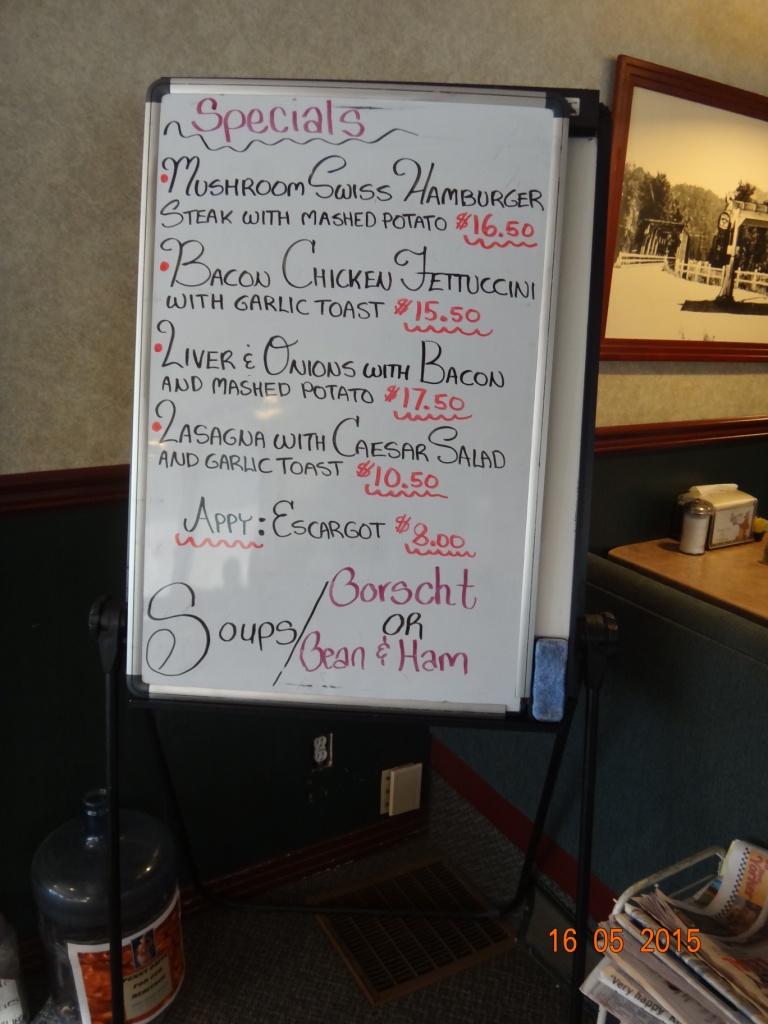 Specials
• Mushroom Swiss Hamburger
Steak with mashed potato $16.50
• Bacon Chicken Fettuccini
with garlic toast $15.50
• Liver & Onions with Bacon
and mashed potato $17.50
• Lasagna with Caesar Salad
and garlic toast $10.50
Appy: Escargot $8.00
Soups/ Borscht
OR
Bean & Ham
16 05 2015
very happy